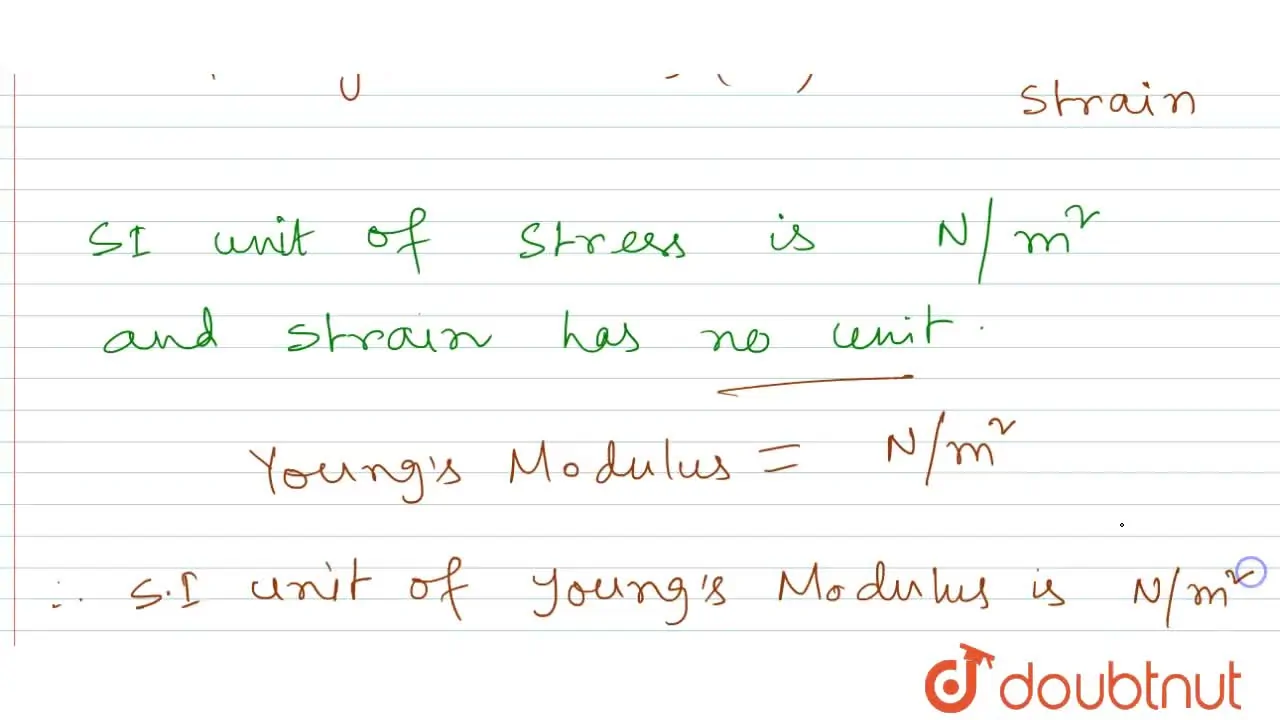 Strain
SI unit of Stress is N/m²
and strain has no unit.
Young's Modulus = N/m²
∴ S.I unit of Young's Modulus is N/m²
doubtnut